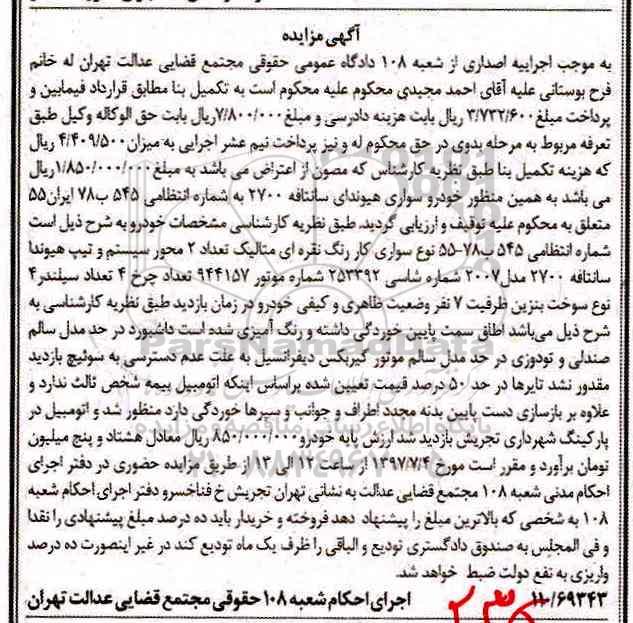 آگهی مزایده
به موجب اجراییه اصداری از شعبه ۱۰۸ دادگاه عمومی حقوقی مجتمع قضایی عدالت تهران له خانم
فرح بوستانی علیه آقای احمد مجیدی محکوم علیه محکوم است به تکمیل بنا مطابق قرارداد فیمابین و
پرداخت مبلغ ۳/۷۳۲/۶۰۰ ریال بابت هزینه دادرسی و مبلغ ۷/۸۰۰/۰۰۰ریال بابت حق الوکاله وکیل طبق
تعرفه مربوط به مرحله بدوی در حق محکوم له و نیز پرداخت نیم عشر اجرایی به میزان ۴/۴۰۹/۵۰۰ ریال
که هزینه تکمیل بنا طبق نظریه کارشناس که مصون از اعتراض می باشد به مبلغ ۱/۸۵۰/۰۰۰/۰۰۰ریال
می باشد به همین منظور خودرو سواری هیوندای سانتافه ۲۷۰۰ به شماره انتظامی ۵۴۵ ب۷۸ ایران۵۵
متعلق به محکوم علیه توقیف و ارزیابی گردید. طبق نظریه کارشناسی مشخصات خودرو به شرح ذیل است
شماره انتظامی ۵۴۵ ب۷۸-۵۵ نوع سواری کار رنگ نقره ای متالیک تعداد ۲ محور سیستم و تیپ هیوندا
سانتافه ۲۷۰۰ مدل ۲۰۰۷ شماره شاسی ۲۵۳۳۹۲ شماره موتور ۹۴۴۱۵۷ تعداد چرخ ۴ تعداد سیلندر۴
نوع سوخت بنزین ظرفیت ۷ نفر وضعیت ظاهری و کیفی خودرو در زمان بازدید طبق نظریه کارشناسی به
شرح ذیل می‌باشد اطاق سمت پایین خوردگی داشته و رنگ آمیزی شده است داشبورد در حد مدل سالم
صندلی و تودوزی در حد مدل سالم موتور گیربکس دیفرانسیل به علت عدم دسترسی به سوئیچ بازدید
مقدور نشد تایرها در حد ۵۰ درصد قیمت تعیین شده براساس اینکه اتومبیل بیمه شخص ثالث ندارد و
علاوه بر بازسازی دست پایین بدنه مجدد اطراف و جوانب و سپرها خوردگی دارد منظور شد و اتومبیل در
پارکینگ شهرداری تجریش بازدید شد ارزش پایه خودرو ۸۵۰/۰۰۰/۰۰۰ ریال معادل هشتاد و پنج میلیون
تومان برآورد و مقرر است مورخ ۱۳۹۷/۷/۴ از ساعت ۱۲ الی ۱۳ از طریق مزایده حضوری در دفتر اجرای
احکام مدنی شعبه ۱۰۸ مجتمع قضایی عدالت به نشانی تهران تجریش خ فناخسرو دفتر اجرای احکام شعبه
۱۰۸ به شخصی که بالاترین مبلغ را پیشنهاد دهد فروخته و خریدار باید ده درصد مبلغ پیشنهادی را نقدا
و فی المجلس به صندوق دادگستری تودیع و الباقی را ظرف یک ماه تودیع کند در غیر اینصورت ده درصد
واریزی به نفع دولت ضبط خواهد شد.
۱۱۰/۶۹۳۴۳ اجرای احکام شعبه ۱۰۸ حقوقی مجتمع قضایی عدالت تهران
ParsNamadData
پایگاه اطلاع رسانی مناقصه و مزایده